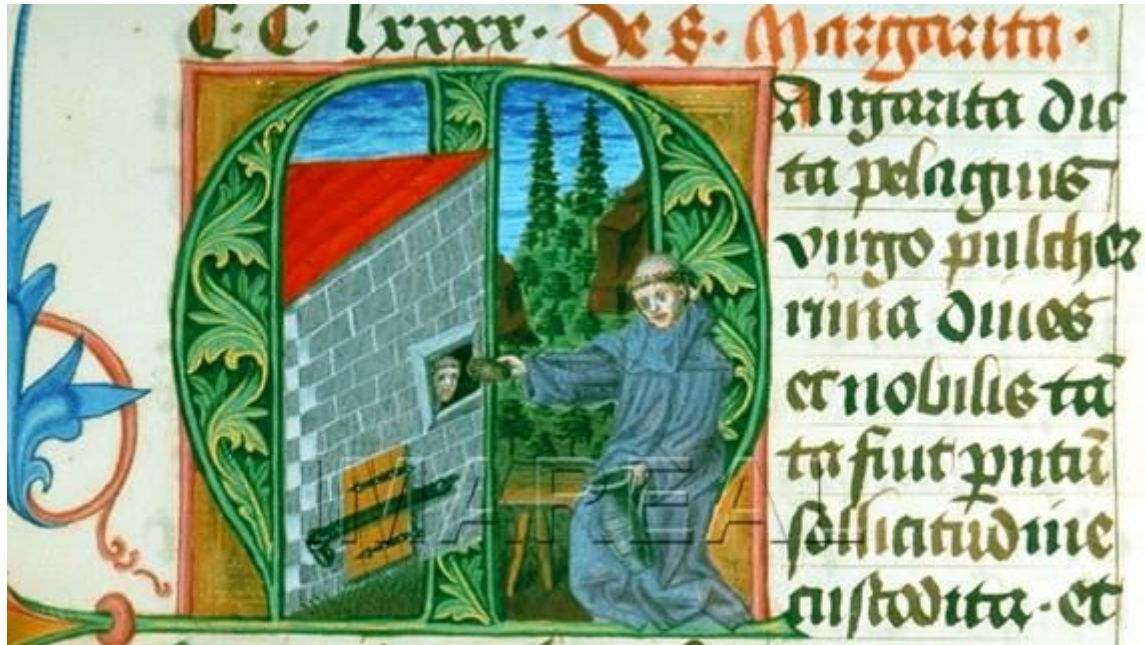 C·C·lxxxx· De S· Margarita·
Argarita dic
ta pelagius
virgo pulcher
rima diues
et nobilis tā
ta fuit ꝑntū
sollicitudine
custodita· et
IMAREAL